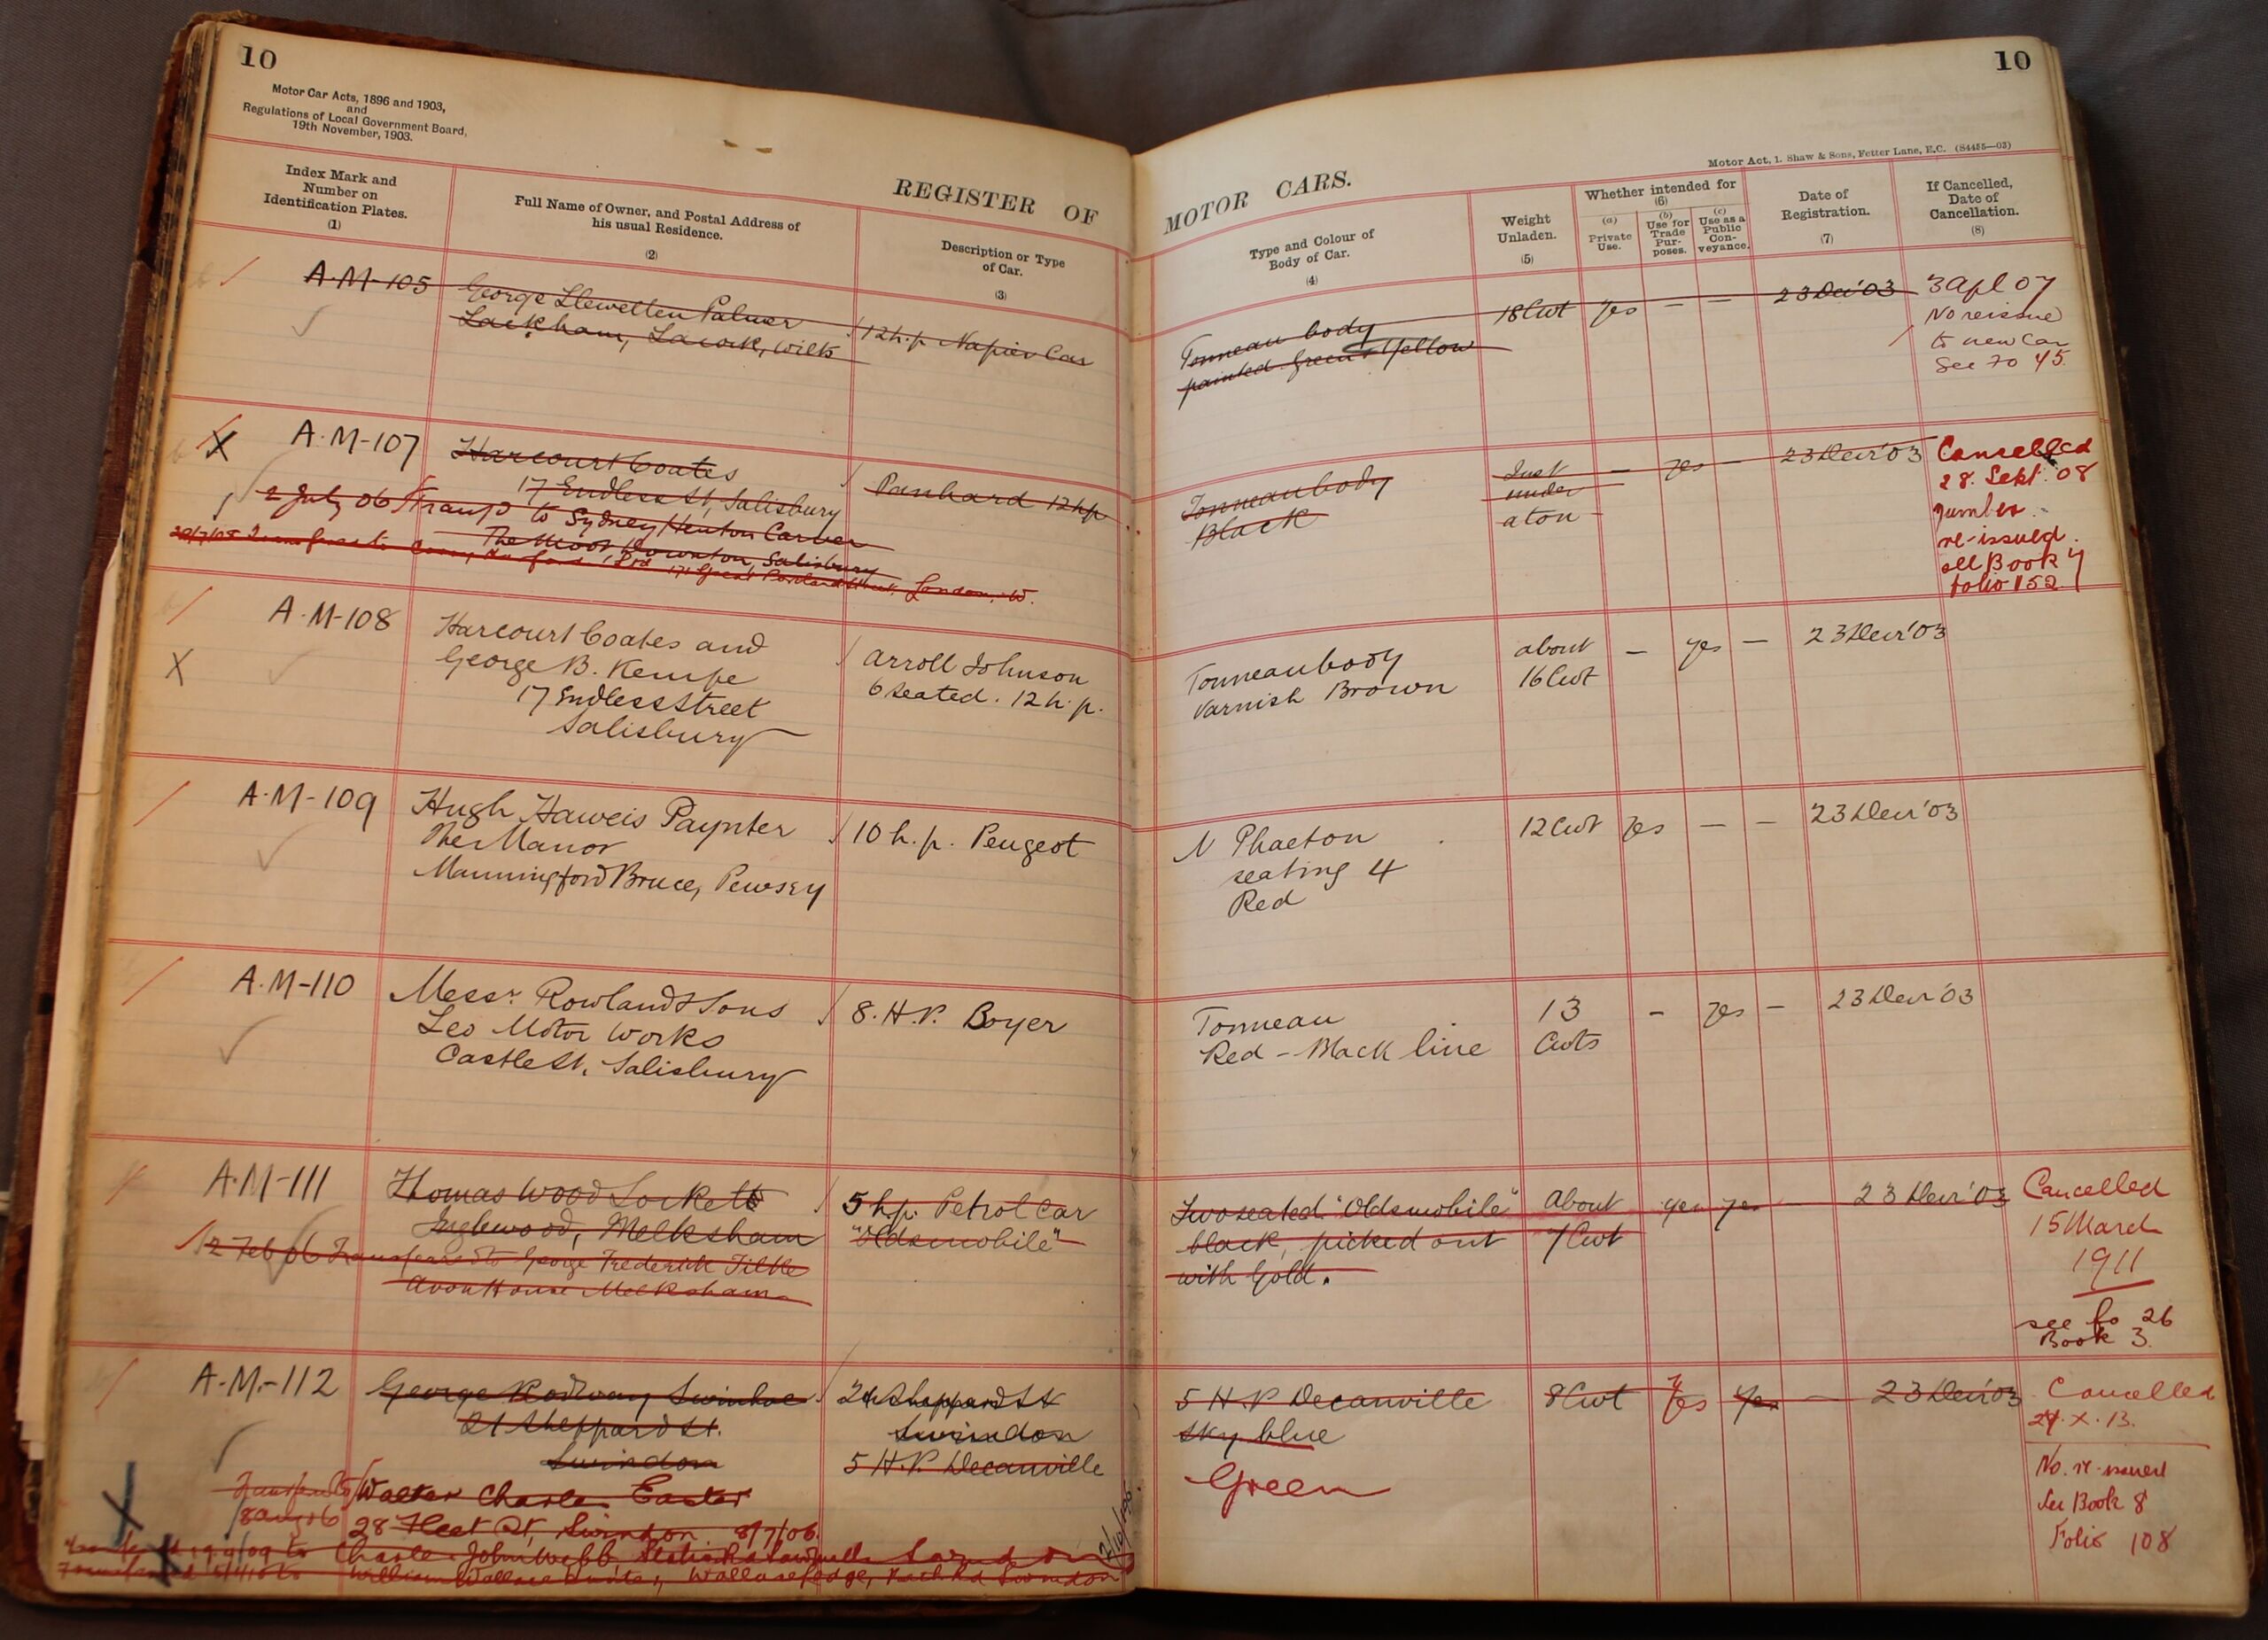 10
Motor Car Acts, 1896 and 1903,
and
Regulations of Local Government Board,
19th November, 1903.
REGISTER OF
Index Mark and
Number on
Identification Plates.
(1)
Full Name of Owner, and Postal Address of
his usual Residence.
(2)
Description or Type
of Car.
(3)
A.M-105
George Llewellen Palmer
Lackham, Lacock, Wilts
12 h.p Napier Car
A.M-107
Harcourt Coates
17 Endless St, Salisbury
Panhard 12 hp
2 July 06 Transf to Sydney Carver
The Moot Downton, Salisbury
London, W.
A.M-108
Harcourt Coates and
George B. Kempe
17 Endless Street
Salisbury
Arroll Johnson
6 seated. 12 h.p.
A.M-109
Hugh Haweis Paynter
The Manor
Manningford Bruce, Pewsey
10 h.p. Peugeot
A.M-110
Messrs Rowland & Sons
Leo Motor Works
Castle St, Salisbury
8.H.P. Boyer
A.M-111
Thomas Wood Lockett
Inglewood, Melksham
2 Feb 06 Transferred to George Frederick Tilke
Avon House Melksham
5 h.p. Petrol Car
"Oldsmobile"
A.M.-112
George Radway Swinhoe
21 Sheppard St.
Swindon
Sheppard St
Swindon
5 H.P. Decanville
Walter Charles Easter
28 Fleet St, Swindon 8/7/06
Charles John Webb
William Wallace Hunter, Wallace Lodge, Swindon
10
Motor Act, 1. Shaw & Sons, Fetter Lane, E.C. (S4455—03)
MOTOR CARS.
Type and Colour of
Body of Car.
(4)
Weight
Unladen.
(5)
Whether intended for
(6)
(a)
Private
Use.
(b)
Use for
Trade
Pur-
poses.
(c)
Use as a
Public
Con-
veyance.
Date of
Registration.
(7)
If Cancelled,
Date of
Cancellation.
(8)
Tonneau body
painted Green & Yellow
18 Cwt yes — — 23 Decr '03
3 Apl 07
No reissued
to new Car
See Fo 45
Tonneau body
Black
Just
under
a ton
— yes — 23 Decr '03
Cancelled
28. Sept. 08
number
re-issued.
see Book 4
folio 152
Tonneau body
Varnish Brown
about
16 Cwt
— yes — 23 Decr '03
N Phaeton
seating 4
Red
12 Cwt yes — — 23 Decr '03
Tonneau
Red - Black line
13
Cwts
- yes - 23 Decr '03
Two seated "Oldsmobile"
black, picked out
with Gold.
About
7 Cwt
yes yes — 23 Decr '03
Cancelled
15 March
1911
see fo 26
Book 3
5 H.P. Decanville
sky blue
Green
8 Cwt yes yes — 23 Decr '03
Cancelled
24.X.13.
No. re-issued
See Book 8
Folio 108